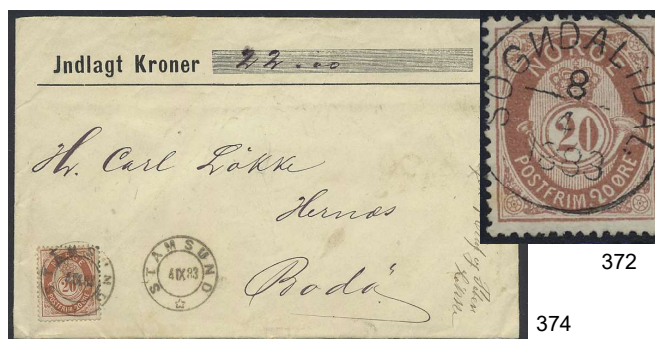 Jndlagt Kroner 22...
Hr. Carl Lökke
Hernæs
Bodö
STAMSUND
4 IX 83
20
STAMSUND
SOGNDAL I DAL.
8
1883
NORGE
20
POSTFRIM. 20 ØRE
372
374